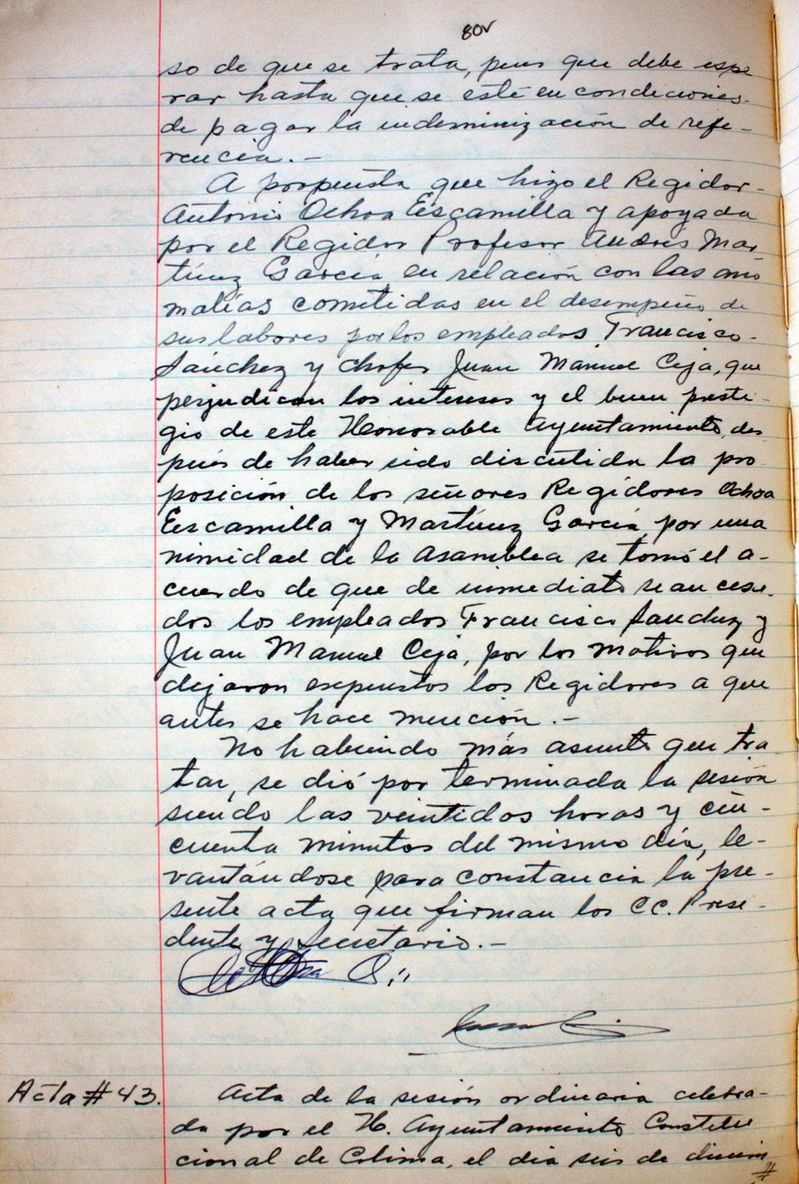 80v
so de que se trata, pues que debe espe
rar hasta que se esté en condiciones.
de pagar la indeminización de refe-
rencia.-
A propuesta que hizo el Regidor-
Antonio Ochoa Escamilla y apoyada
por el Regidor Profesor Andrés Mar
tínez García en relación con las ano
malías cometidas en el desempeño de
sus labores por los empleados Francisco-
Sánchez y chofer Juan Manuel Ceja, que
perjudican los intereses y el buen presti-
gio de este Honorable Ayuntamiento, des
pués de haber sido discutida la pro
posición de los señores Regidores Ochoa
Escamilla y Martínez García por una
nimidad de la Asamblea se tomó el a-
cuerdo de que de inmediato sean cesa-
dos los empleados Francisco Sanchez y
Juan Manuel Ceja, por los motivos que
dejaron expuestos los Regidores a que
antes se hace mención.-
No habiendo más asunto que tra
tar, se dió por terminada la sesión
siendo las veintidos horas y cin-
cuenta minutos del mismo día, le-
vantándose para constancia la pre-
sente acta que firman los CC. Presi-
dente y Secretario.-
Acta # 43.
Acta de la sesión ordinaria celebra-
da por el H. Ayuntamiento Constitu
cional de Colima, el día seis de diciem
#